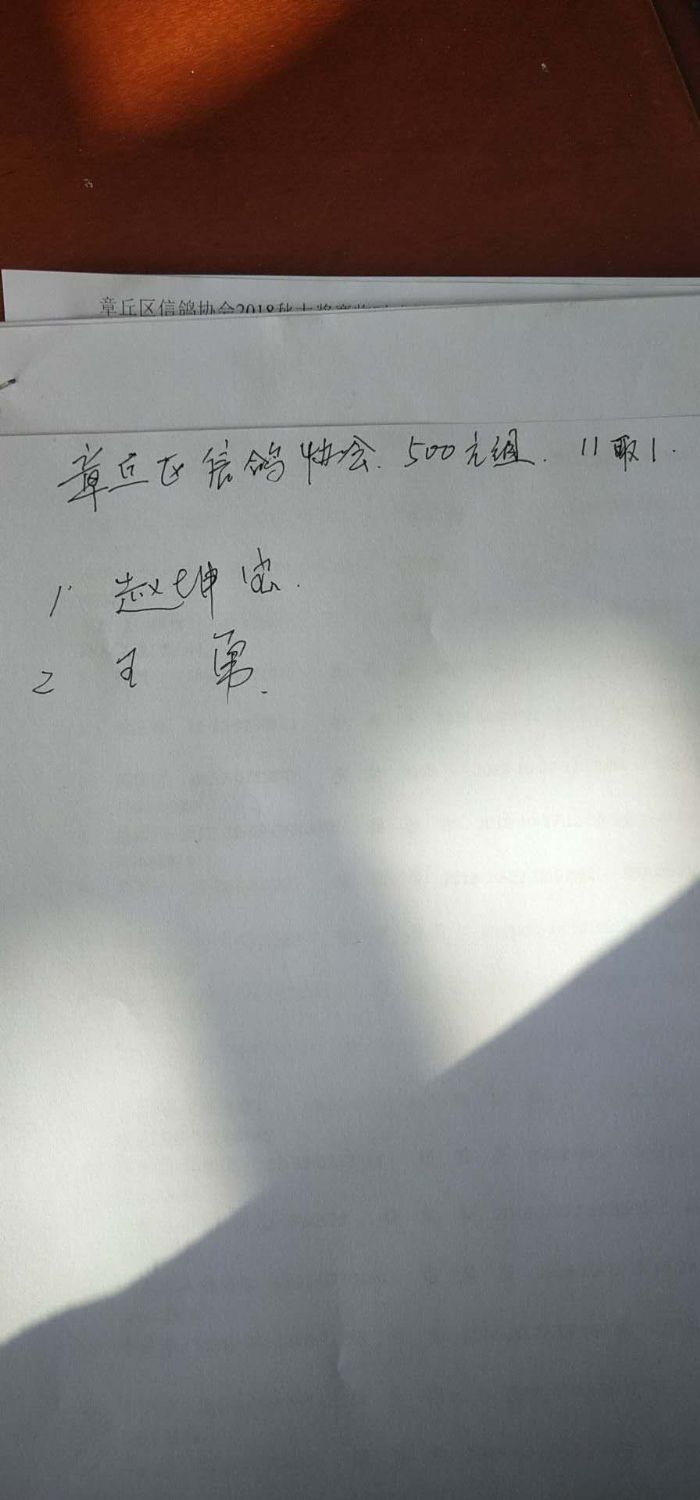 章丘区信鸽协会2018秋大奖赛
章丘区信鸽协会. 500元组. 11取1.
1 赵坤
2 王勇.